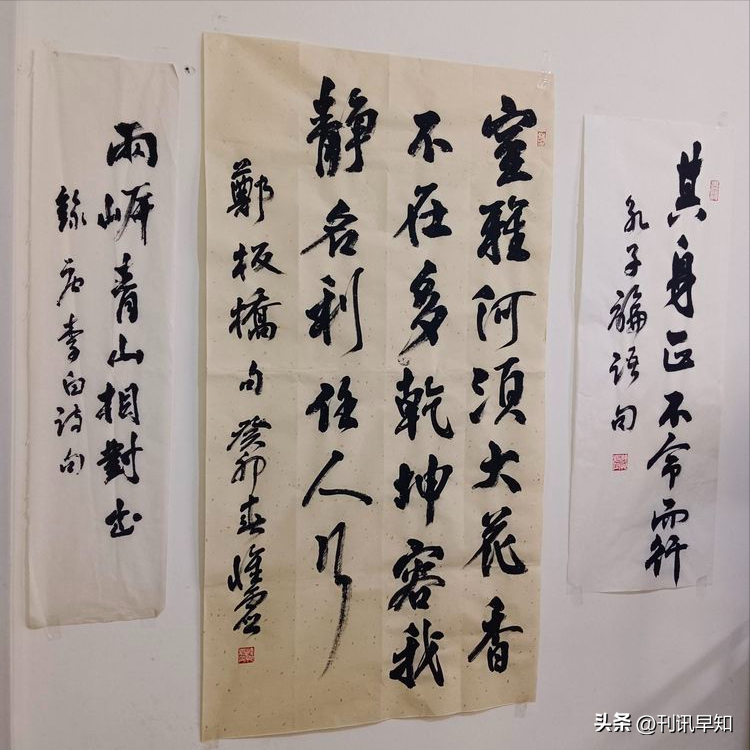 其身正不令而行
孔子論语句
室雅何须大花香
不在多乾坤容我
静名利任人忙
鄭板橋句癸卯春
兩岸青山相對出
錄唐李白诗句
头条 @刊讯早知